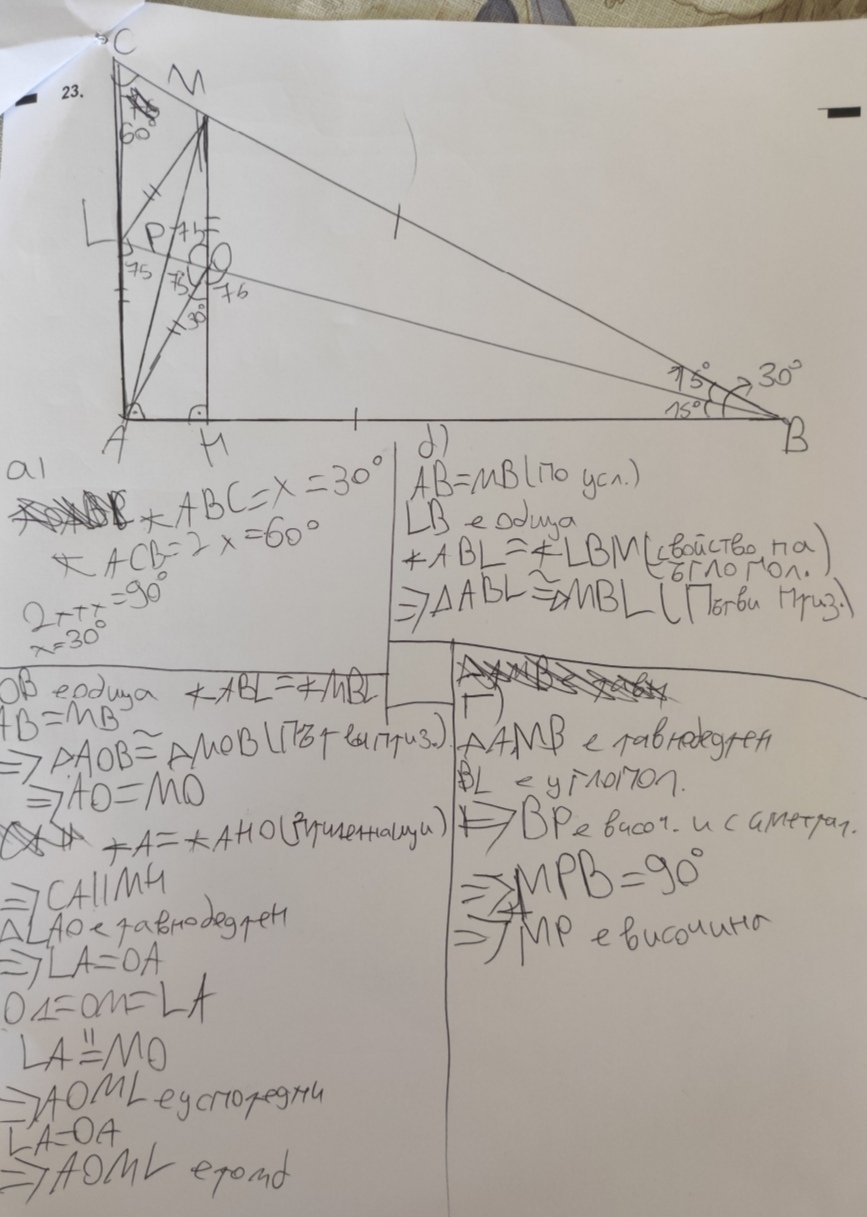 C
M
23.
60°
L
P
75
O
75
75
76
30°
15°
30°
15°
A
H
B
а)
∢ABC=x=30°
∢ACB=2x=60°
2x+x=90°
x=30°
б)
AB=MB(по усл.)
LB е обща
∢ABL=∢LBM(свойство на
ъглопол.)
=>△ABL≅△MBL(Първи приз.)
OB е обща ∢ABL=∢MBL
AB=MB
=>△AOB≅△MOB(Първи приз.)
=>AO=MO
∢A=∢AHO
=>CA||MH
△LAO е равнобедрен
=>LA=OA
OA=OM=LA
LA=||MO
=>AOML е успоредни
LA=OA
=>AOML е ромб
г)
△AMB е равнобедрен
BL е углопол.
=>BP е височ. и симетрал.
=>∢MPB=90°
=>MP е височина